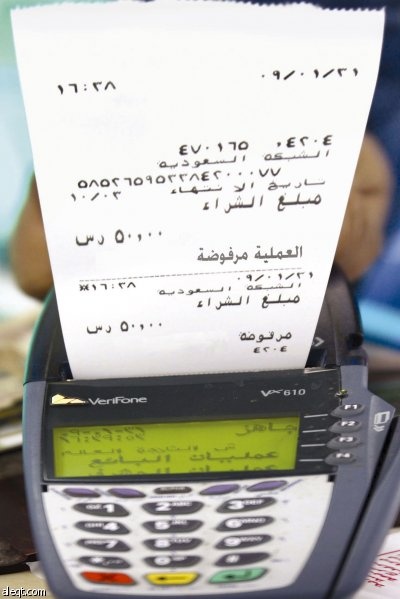 ٠٩/٠١/٢١ ١٦:٣٨
٠٤٢٠٤ ٤٧٠١٦٥
الشبكة السعودية
٥٨٥٢٦٥٩٥٢٢٨٤٢٠٠٠٧٧
تاريخ الانتهاء ١٠/٠٢
مبلغ الشراء
٥٠,٠٠ رس
العملية مرفوضة
٠٩/٠١/٢١
الشبكة السعودية ١٦:٣٨*
مبلغ الشراء
٥٠,٠٠ رس
مرفوضة
٤٢٠٤
VeriFone Vx610
جاهز
عمليات البائع
F1
F2
F3
F4
1 2 3
4 5 6
7 8 9
0
aleqt.com